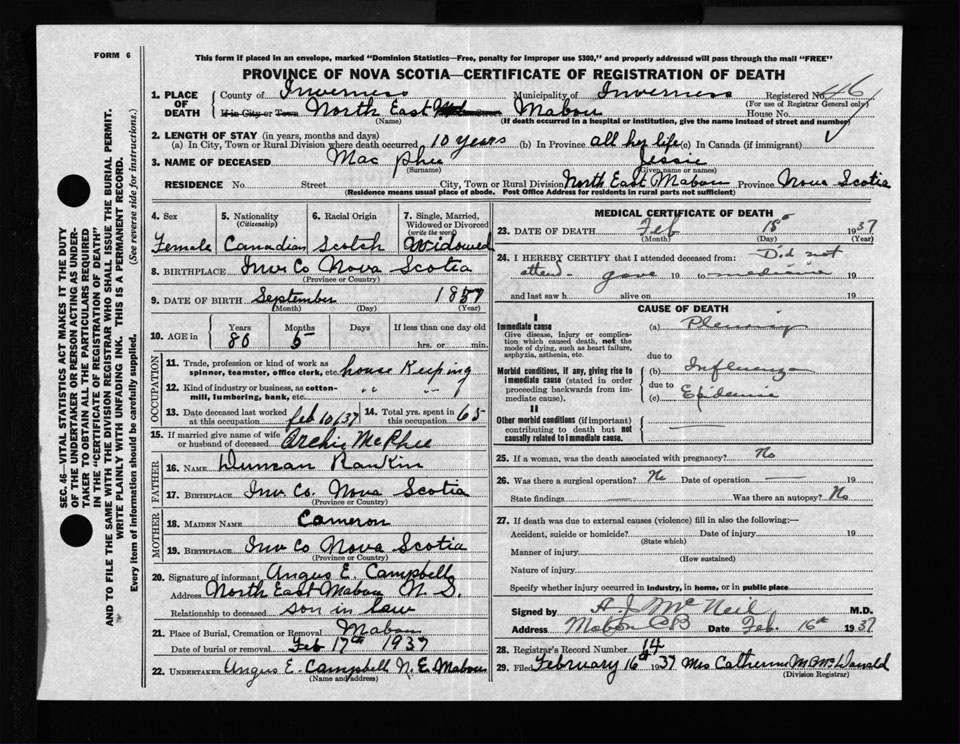 FORM 6
This form if placed in an envelope, marked "Dominion Statistics—Free, penalty for improper use $300," and properly addressed will pass through the mail "FREE"
PROVINCE OF NOVA SCOTIA—CERTIFICATE OF REGISTRATION OF DEATH
SEC. 46—VITAL STATISTICS ACT MAKES IT THE DUTY
OF THE UNDERTAKER OR PERSON ACTING AS UNDER-
TAKER TO OBTAIN ALL THE PARTICULARS REQUIRED
IN THE "CERTIFICATE OF REGISTRATION OF DEATH"
AND TO FILE THE SAME WITH THE DIVISION REGISTRAR WHO SHALL ISSUE THE BURIAL PERMIT.
WRITE PLAINLY WITH UNFADING INK. THIS IS A PERMANENT RECORD.
Every item of information should be carefully supplied. (See reverse side for instructions.)
1. PLACE OF DEATH County of Inverness Municipality of Inverness Registered No. 46
(For use of Registrar General only)
If in City or Town North East Mabou House No.
(Name) (If death occurred in a hospital or institution, give the name instead of street and number)
2. LENGTH OF STAY (in years, months and days)
(a) In City, Town or Rural Division where death occurred 10 years (b) In Province all her life (c) In Canada (if immigrant)
3. NAME OF DECEASED Mac Phee Jessie
(Surname) (Given name or names)
RESIDENCE No. Street City, Town or Rural Division North East Mabou Province Nova Scotia
(Residence means usual place of abode. Post Office Address for residents in rural parts not sufficient)
4. Sex 5. Nationality (Citizenship) 6. Racial Origin 7. Single, Married, Widowed or Divorced (write the word)
Female Canadian Scotch Widowed
8. BIRTHPLACE Inv Co Nova Scotia
(Province or Country)
9. DATE OF BIRTH September 1857
(Month) (Day) (Year)
10. AGE in Years Months Days If less than one day old
80 5 hrs. or min.
OCCUPATION
11. Trade, profession or kind of work as spinner, teamster, office clerk, etc. house Keeping
12. Kind of industry or business, as cotton-mill, lumbering, bank, etc. " "
13. Date deceased last worked at this occupation feb 10/37 14. Total yrs. spent in this occupation 65
15. If married give name of wife or husband of deceased Archie McPhee
FATHER
16. NAME Duncan Rankin
17. BIRTHPLACE Inv Co. Nova Scotia
(Province or Country)
MOTHER
18. MAIDEN NAME Cameron
19. BIRTHPLACE Inv Co Nova Scotia
(Province or Country)
20. Signature of informant Angus E. Campbell
Address North East Mabou N. S.
Relationship to deceased son in law
21. Place of Burial, Cremation or Removal Mabou
Date of burial or removal Feb 17th 1937
22. UNDERTAKER Angus E. Campbell N. E. Mabou
(Name and address)
MEDICAL CERTIFICATE OF DEATH
23. DATE OF DEATH Feb 15 1937
(Month) (Day) (Year)
24. I HEREBY CERTIFY that I attended deceased from: Did not
attend - gave 19 to medicine 19
and last saw h alive on 19
CAUSE OF DEATH
I
Immediate cause (a) Pleurisy
Give disease, injury or complication which caused death, not the mode of dying, such as heart failure, asphyxia, asthenia, etc.
due to
Morbid conditions, if any, giving rise to immediate cause (stated in order proceeding backwards from immediate cause). (b) Influenza
due to
(c) Epidemic
II
Other morbid conditions (if important) contributing to death but not causally related to immediate cause.
25. If a woman, was the death associated with pregnancy? No
26. Was there a surgical operation? No Date of operation —
State findings — Was there an autopsy? No
27. If death was due to external causes (violence) fill in also the following:—
Accident, suicide or homicide? Date of injury 19
(State which)
Manner of injury
(How sustained)
Nature of injury
Specify whether injury occurred in industry, in home, or in public place
Signed by A. J. McNeil M.D.
Address Mabou CB Date Feb. 16th 1937
28. Registrar's Record Number 14
29. Filed February 16th 1937 Mrs Catherine M McDonald
(Division Registrar)